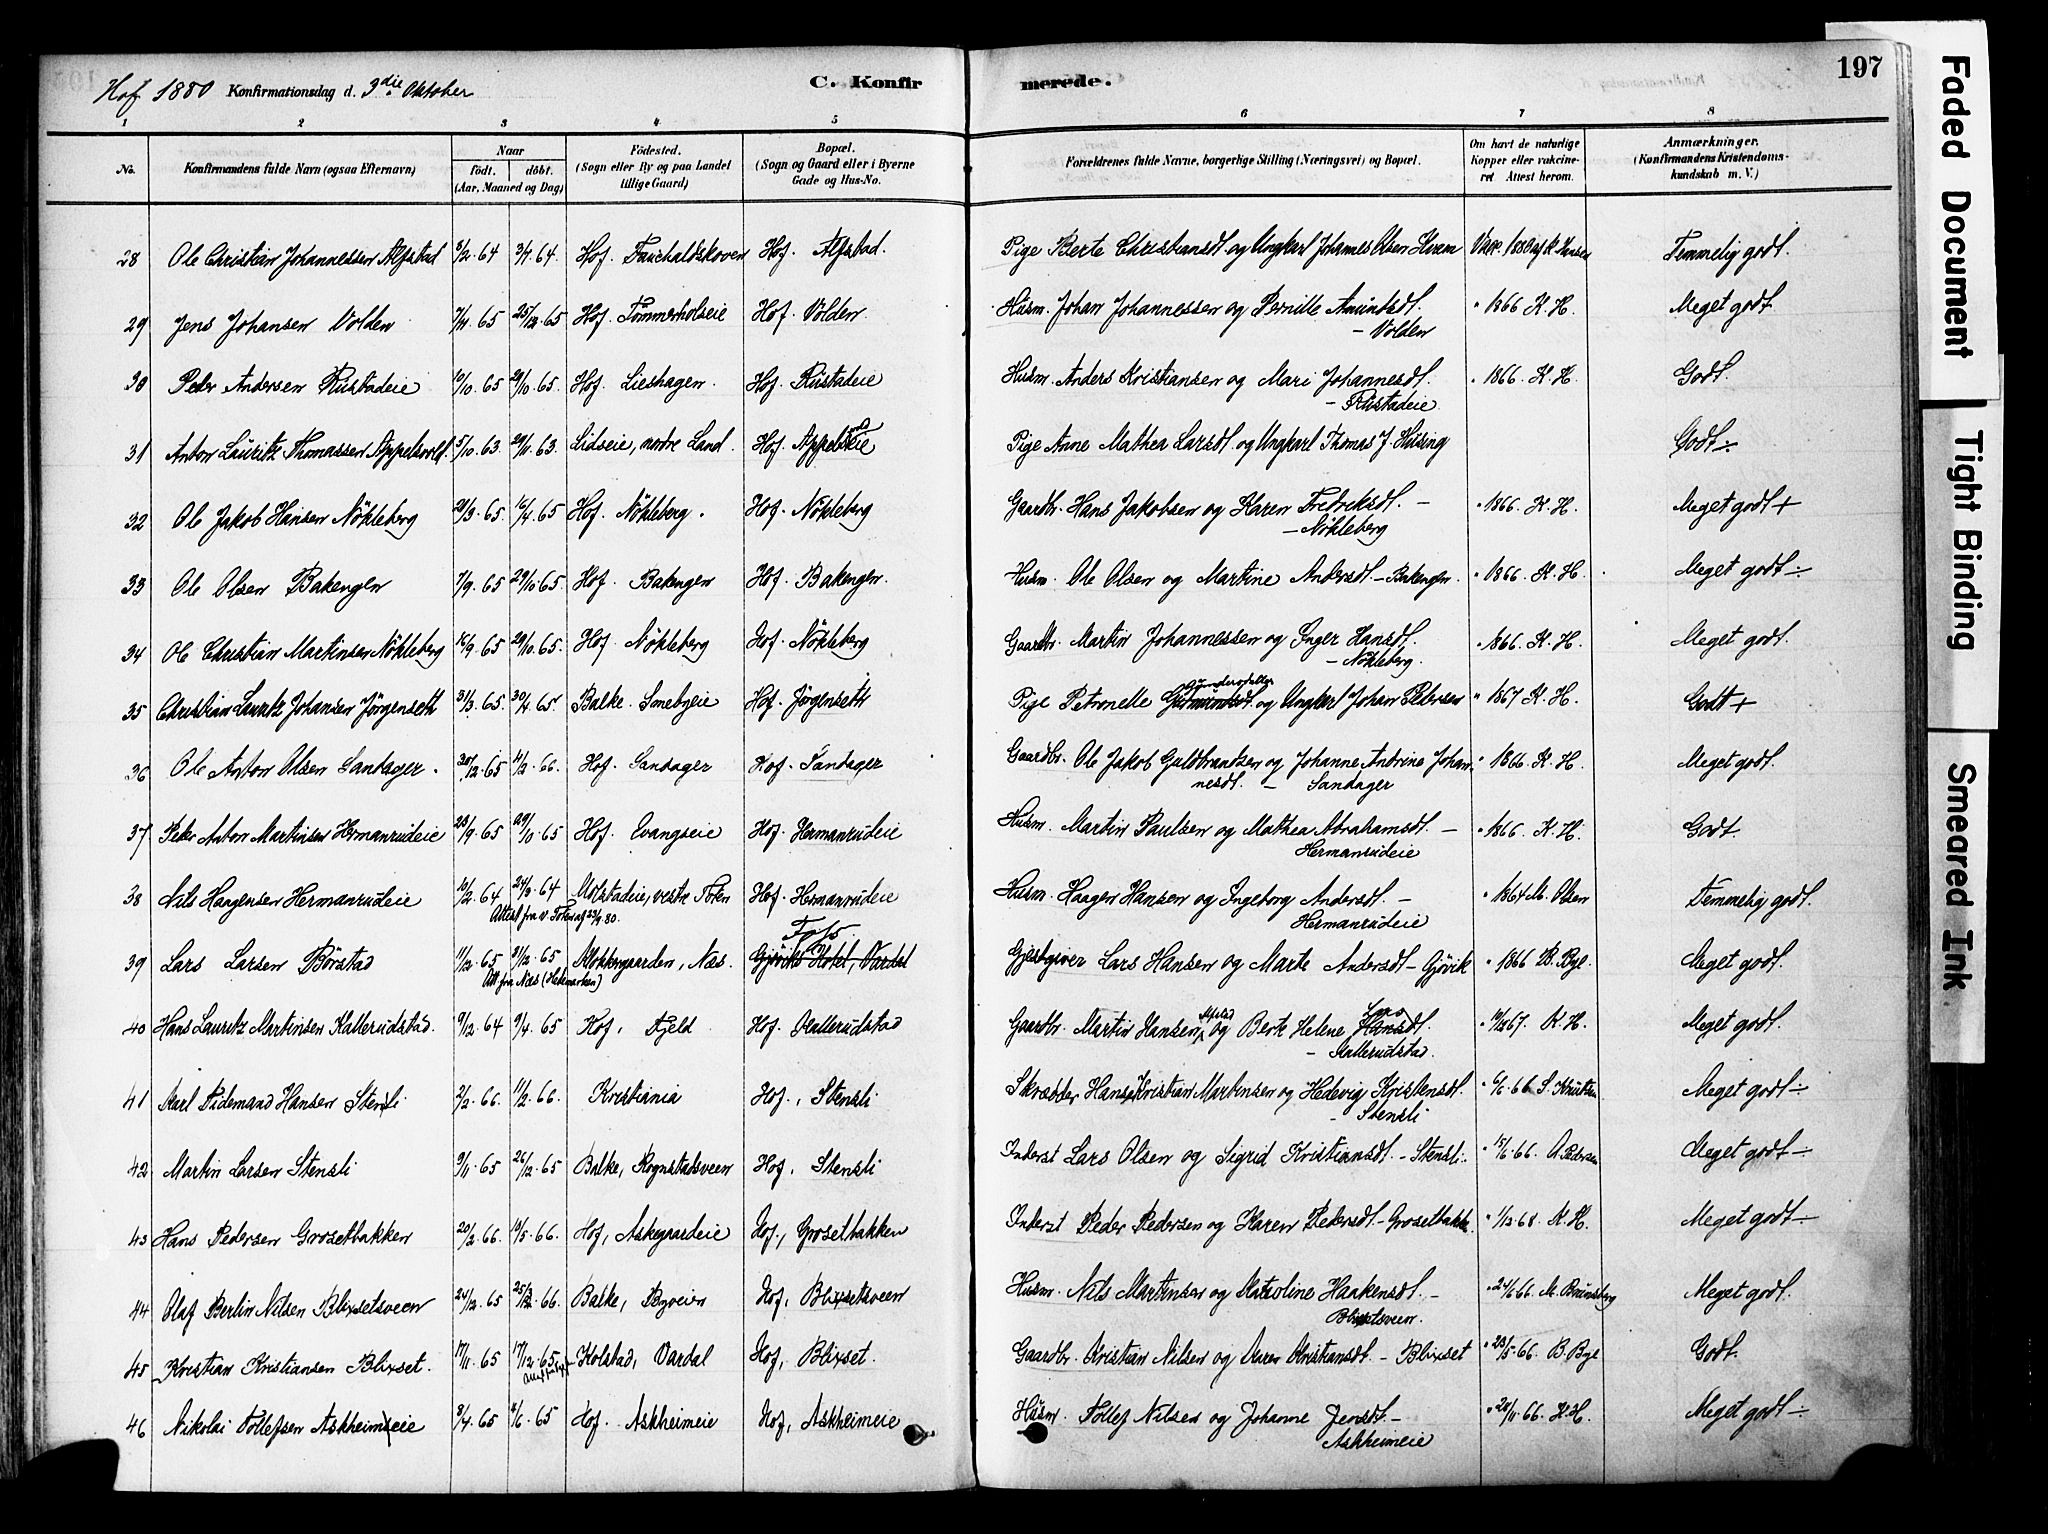 Hof 1880 Konfirmationsdag d. 3die Oktober C. Konfirmerede. 197
1 2 3 4 5 6 7 8
No. Konfirmandens fulde Navn (ogsaa Efternavn) Naar født. døbt. (Aar, Maaned og Dag) Födested. (Sogn eller By og paa Landet tillige Gaard) Bopæl. (Sogn og Gaard eller i Byerne Gade og Hus-No.) Forældrenes fulde Navne, borgerlige Stilling (Næringsvei) og Bopæl. Om havt de naturlige Kopper eller vakcineret Attest herom. Anmærkninger. (Konfirmandens Kristendomskundskab m. V.)
28 Ole Christian Johannessen Alfstad 5/2 64 3/4 64. Hof. Fauchaldskoven Hof. Alfstad. Pige Berte Christiansdt og Ungkarl Johannes Olsen Temmelig godt.
29 Jens Johansen Volden 65 65 Hof. Tømmerholseie Hof. Volden. Husm. Johan Johannessen og Pernille Amundsdt. - Volden " 1866 K. H. Meget godt
30 Peder Andersen Rustadeie 10/10. 65 29/10. 65. Hof. Lieshagen. Hof. Rustadeie Husm. Anders Kristiansen og Mari Johannesdt. - Rustadeie " 1866. K. H. Godt.
31 Anton Lauritz Thomassen Appelsvold 5/10. 63 29/11. 63. Lidseie, nordre Land. Hof. Pige Anne Mathea Larsdt og Ungkarl Thomas J. Husing Godt ÷
32 Ole Jakob Hansen Nökleberg 65. 16/4. 65 Hof. Nökleberg. Hof. Nökleberg Gaardbr. Hans Jakobsen og Karen Fredriksdt. - Nökleberg " 1866. K. H. Meget godt +
33 Ole Olsen Bakengen 7/9. 65 29/10 65. Hof. Bakengen Hof. Bakengen. Husm. Ole Olsen og Martine Andersdt - Bakengen. " 1866. K. H. Meget godt ÷
34 Ole Christian Martinsen Nökleberg 16/9. 65 29/10. 65. Hof. Nökleberg Hof. Nökleberg Gaardbr. Martin Johannessen og Inger Hansdt. - Nökleberg. " 1866. K. H. Meget godt.
35 Christian Lauritz Johansen Jörgenseth 31/3. 65. 30/4. 65 Balke. Smebyeie Hof. Jörgenseth Pige Petronelle og Ungkarl Johan Petersen " 1867 K. H. Godt +
36 Ole Anton Olsen Sandager. 30/12. 65 11/2. 66. Hof. Sandager Hof. Sandager Gaardbr. Ole Jakob Guldbrandsen og Johanne Andrine Johannesdt. - Sandager " 1866 K. H. Meget godt.
37 Peder Anton Martinsen Hermanrudeie 23/9. 65 29/10. 65 Hof. Evangseie Hof. Hermanrudeie Husm. Martin Paulsen og Mathea Abrahamsdt. - Hermanrudeie " 1866. K. H. Godt.
38 Nils Haagensen Hermanrudeie 10/2. 64 24/3. 64 Attest fra v. Toten af 80. Molstadeie, vestre Toten Hof. Hermanrudeie Husm. Haagen Hansen og Ingeborg Andersdt. - Hermanrudeie " 1864 Olsen Temmelig godt.
39 Lars Larsen Börstad 11/12. 65 31/12. 65 Att. fra Næs (Hedemarken) Klokkergaarden, Næs. Gjöviks Hotel, Vardal Gjestgiver Lars Hansen og Marte Andersdt - Gjövik " 1866 B. Bye. Meget godt.
40 Hans Lauritz Martinsen Kallerudstad. 9/12. 64 9/4. 65 Hof, Fjeld Hof. Kallerudstad Gaardbr. Martin Hansen og Berte Helene Hansdt. - Kallerudstad. 67. K. H. Meget godt.
41 Karl Tidemand Hansen Stensli 2/2. 66. 11/2. 66. Kristiania Hof, Stensli Skrædder Hans Kristian Martinsen og Hedevig Kristensdt. - Stensli 6/6. 66 S. Knutsen Meget godt ÷
42 Martin Larsen Stensli 9/11. 65 26/12. 65 Balke, Rognstadsveen Hof, Stensli Inderst Lars Olsen og Sigrid Kristiansdt. - Stensli. " 15/6. 66. Pedersen Meget godt ÷
43 Hans Pedersen Grosetbakken 20/2. 66. 10/5. 66. Hof, Askegaardeie Hof, Grosetbakken Inderst Peder Pedersen og Karen Pedersdt - Grosetbakk. " 1/12 68. K. H. Meget godt ÷
44 Olaf Berlin Nilsen Blixsetsveen 24/12. 65 66. Balke, Byveien Hof, Blixsetsveen Husm. Nils Martinsen og Karoline Haakensdt. - Blixetsveen. " 24/6 66. M. Brunsberg Meget godt.
45 Kristian Kristiansen Blixset. 17/11. 65 17/12. 65 Kolstad, Vardal Hof, Blixset. Gaardbr. Kristian Nilsen og Karen Kristiansdt - Blixset " 23/5. 66. B. Bye Godt.
46 Nikolai Tollefsen Askheimeie 3/4. 65 65 Hof. Askheimeie Hof, Askheimeie Husm. Tollef Nilsen og Johanne Jensdt. - Askheimeie " 20/11. 66. K. H. Meget godt ÷
Faded Document
Tight Binding
Smeared Ink